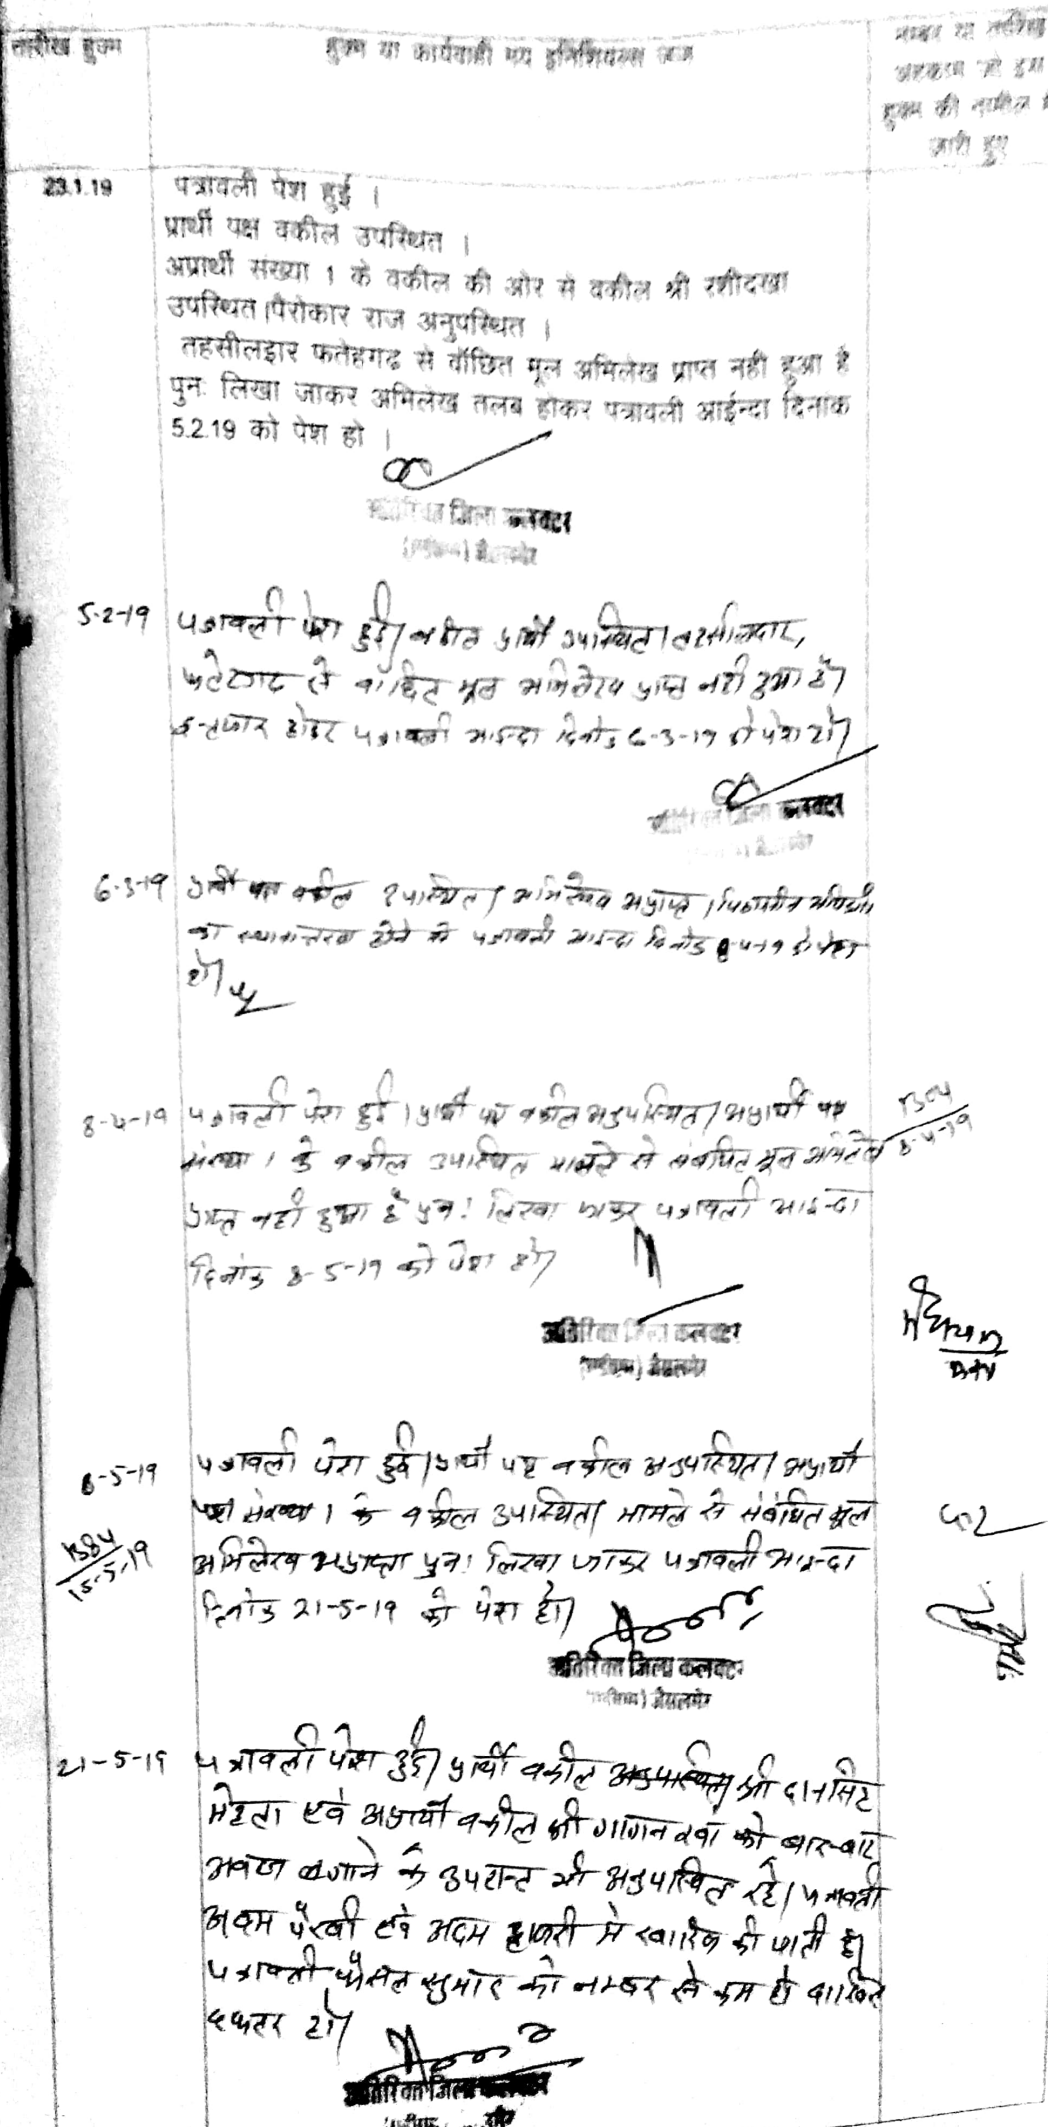 तारीख हुक्म
हुक्म या कार्यवाही मय इनिशियल्स जज
नम्बर या तारीख
अहकाम जो इस
हुक्म की तामील में
जारी हुए
23.1.19
पत्रावली पेश हुई ।
प्रार्थी पक्ष वकील उपस्थित ।
अप्रार्थी संख्या 1 के वकील की ओर से वकील श्री रशीदखा
उपस्थित।पैरोकार राज अनुपस्थित ।
तहसीलद्वार फतेहगढ से वॉछित मूल अभिलेख प्राप्त नही हुआ है
पुनः लिखा जाकर अभिलेख तलब होकर पत्रावली आईन्दा दिनांक
5.2.19 को पेश हो ।
अतिरिक्त जिला कलक्टर
जैसलमेर
5-2-19 पत्रावली पेश हुई। वकील प्रार्थी उपस्थित। तहसीलदार,
फतेहगढ से वांछित मूल अभिलेख प्राप्त नही हुआ है।
इन्तजार होकर पत्रावली आइन्दा दिनांक 6-3-19 को पेश हो।
अतिरिक्त जिला कलक्टर
जैसलमेर
6-3-19 प्रार्थी पक्ष वकील उपस्थित। अभिलेख अप्राप्त।
का स्थानान्तरण होने से पत्रावली आइन्दा दिनांक 8-4-19 को पेश
हो।
8-4-19 पत्रावली पेश हुई। प्रार्थी पक्ष वकील अनुपस्थित। अप्रार्थी पक्ष
संख्या 1 के वकील उपस्थित मामले से संबंधित मूल अभिलेख
8-4-19
प्राप्त नही हुआ है पुनः लिखा जाकर पत्रावली आइन्दा
दिनांक 8-5-19 को पेश हो।
अतिरिक्त जिला कलक्टर
जैसलमेर
8-5-19 पत्रावली पेश हुई। प्रार्थी पक्ष वकील अनुपस्थित। अप्रार्थी
पक्ष संख्या 1 के वकील उपस्थित। मामले से संबंधित मूल
15-5-19
अभिलेख अप्राप्त। पुनः लिखा जाकर पत्रावली आइन्दा
दिनांक 21-5-19 को पेश हो।
अतिरिक्त जिला कलक्टर
जैसलमेर
21-5-19 पत्रावली पेश हुई। प्रार्थी वकील अनुपस्थित। श्री दानसिह
मेहता एवं अप्रार्थी वकील श्री गागन खां को बार-बार
आवाज लगाने के उपरान्त भी अनुपस्थित रहे। पत्रावली
अदम पैरवी एवं अदम हाजरी मे खारिज की जाती है।
पत्रावली फैसल शुमार को नम्बर से कम हो दाखिल
दफ्तर हो।
अतिरिक्त जिला कलक्टर